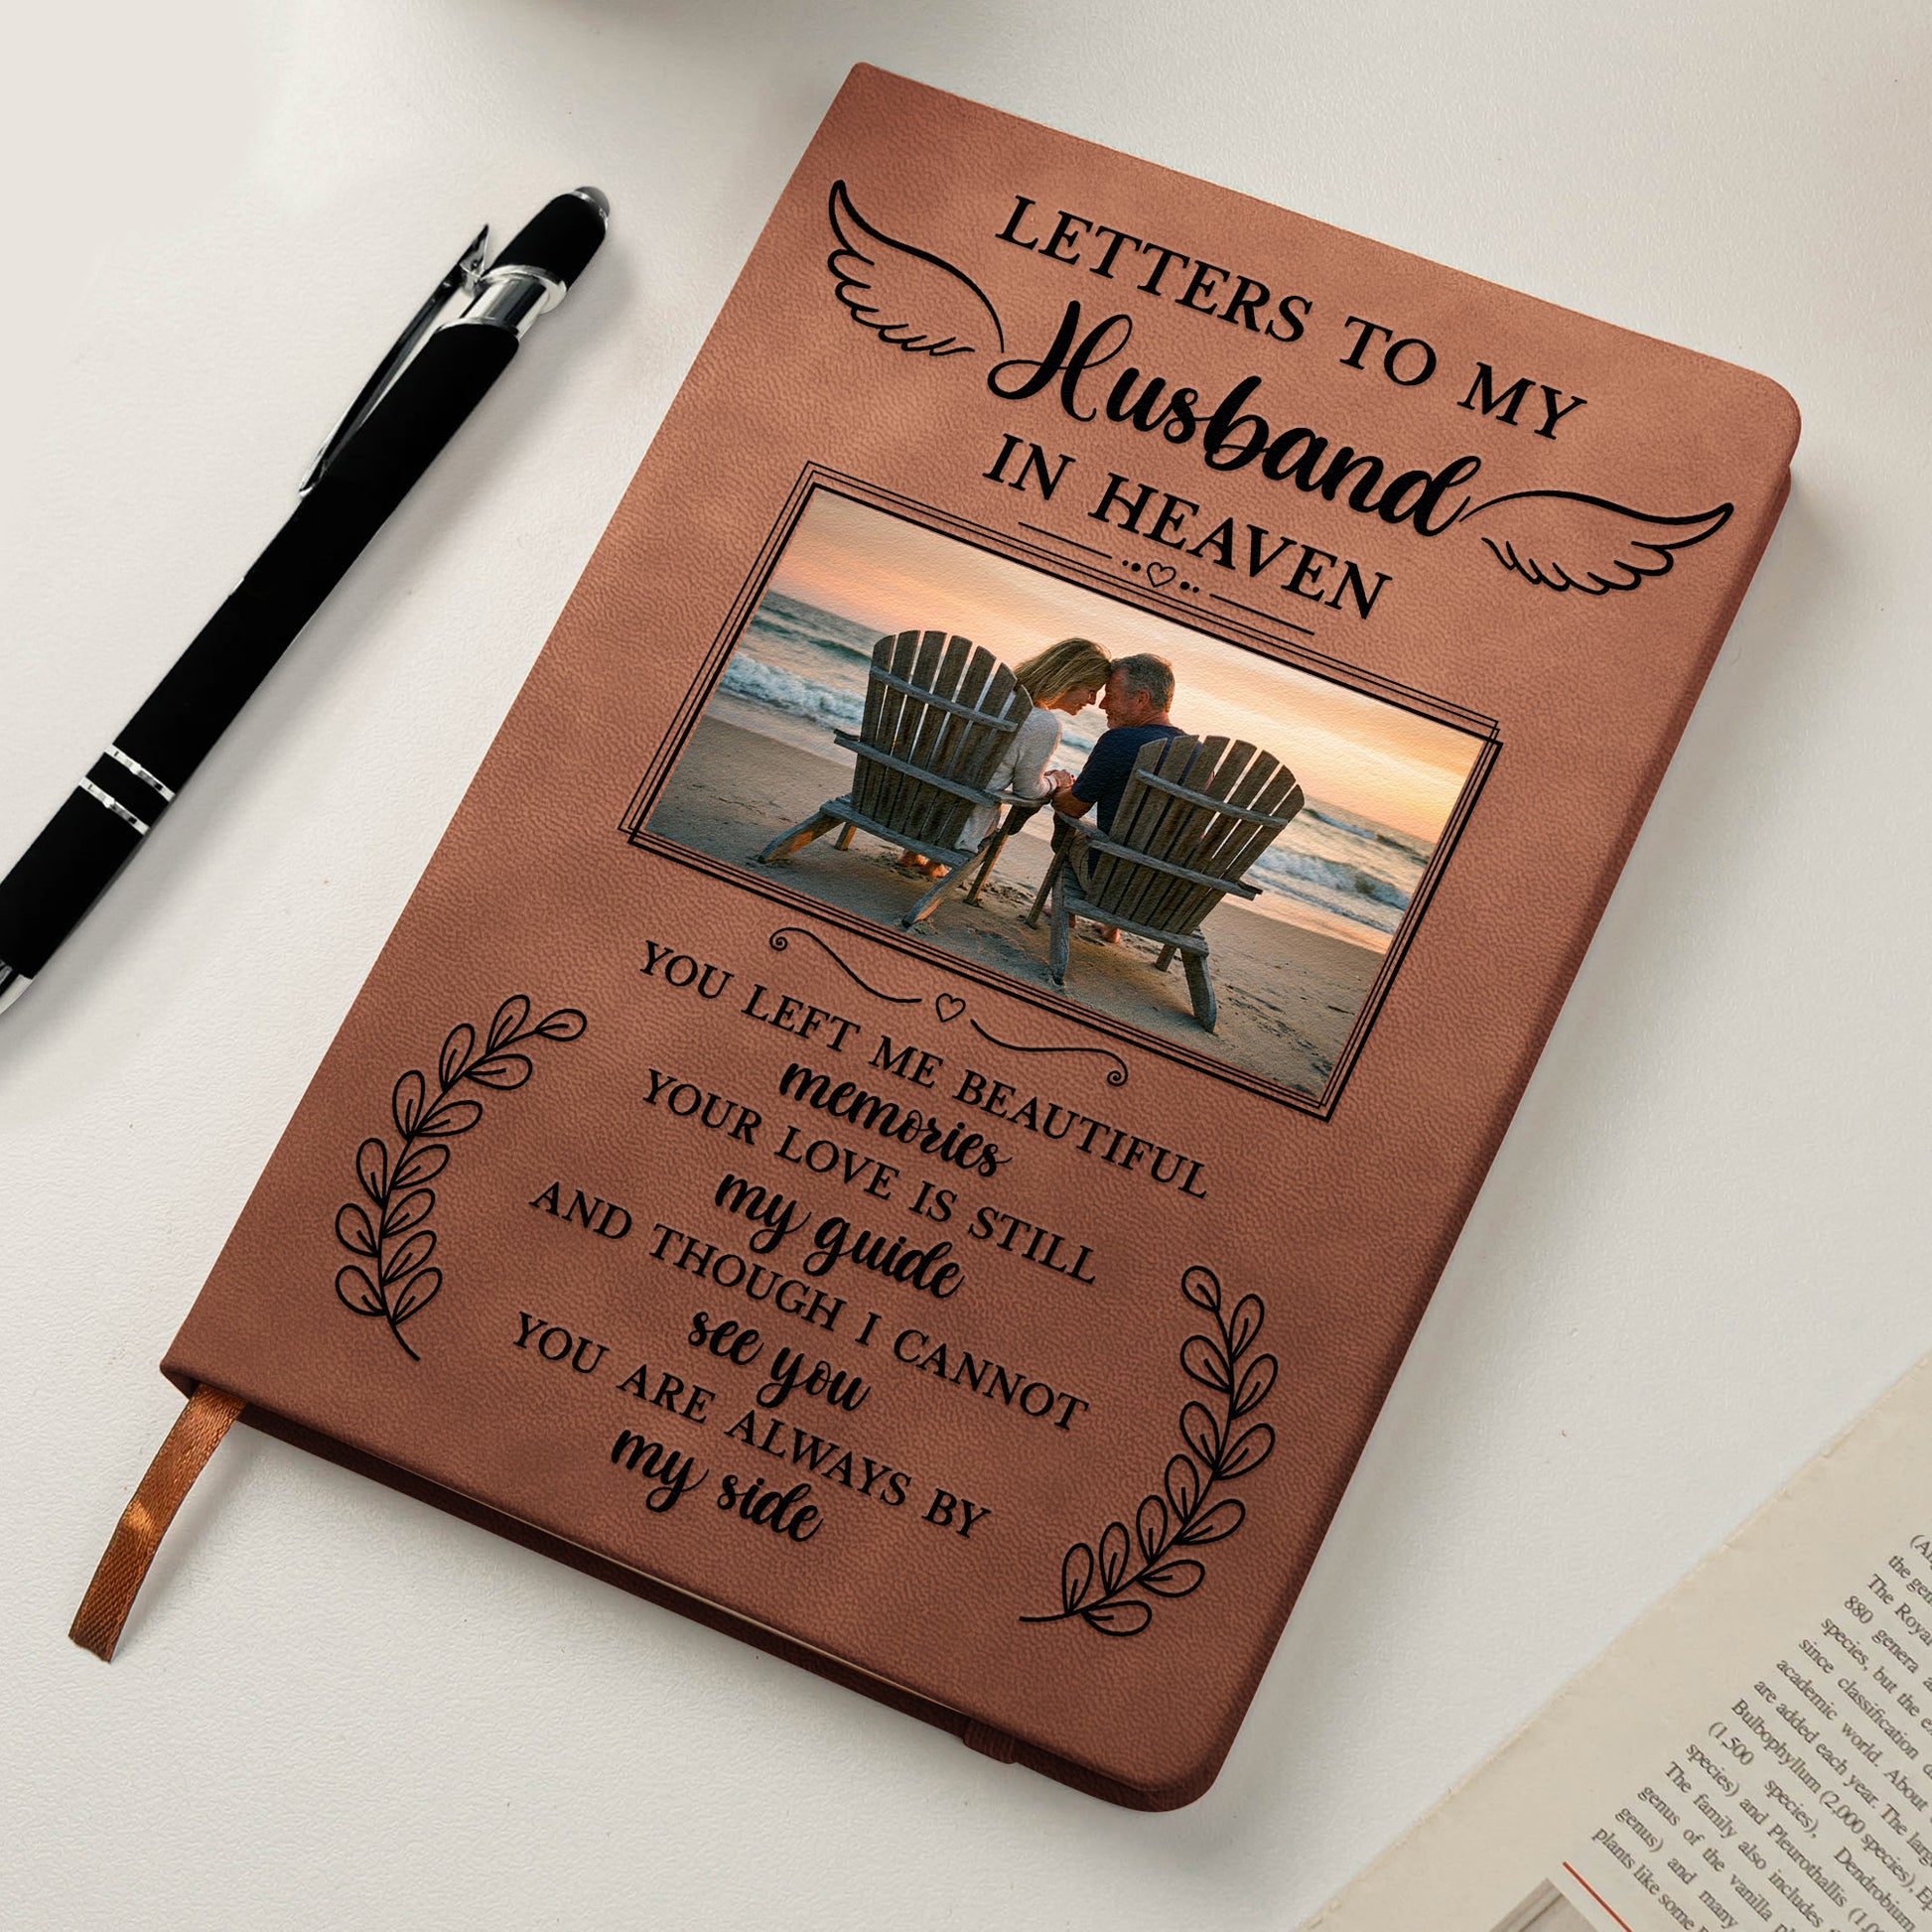 LETTERS TO MY
Husband
IN HEAVEN
YOU LEFT ME BEAUTIFUL
memories
YOUR LOVE IS STILL
my guide
AND THOUGH I CANNOT
see you
YOU ARE ALWAYS BY
my side
the gen
The Royal
880 genera
species, but the
since classification
academic world. About
are added each year. The
Bulbophyllum (2,000 species),
(1,500 species), Dendrobium
species) and Pleurothallis
The family also includes
genus of the vanilla
genus) and many
plants like some